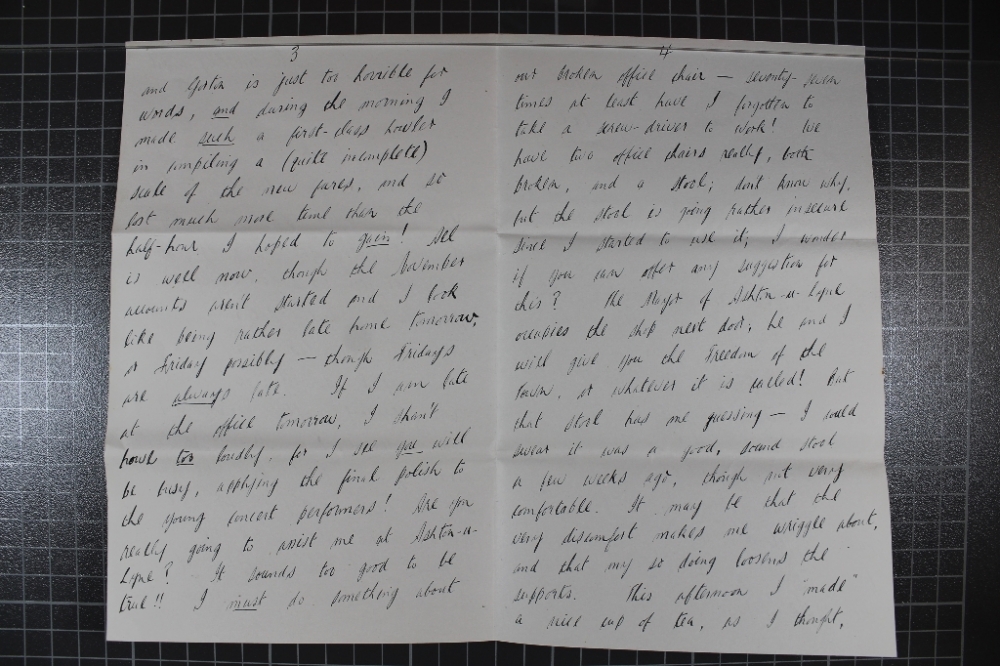 3
and Gorton is just too horrible for
words, and during the morning I
made such a first-class howler
in compiling a (quite incomplete)
scale of the new fares, and so
lost much more time than the
half-hour I hoped to gain! All
is well now, though the November
accounts aren't started and I look
like being rather late home tomorrow,
or Friday possibly — though Fridays
are always late. If I am late
at the office tomorrow, I shan't
howl too loudly, for I see you will
be busy, applying the final polish to
the young concert performers! Are you
really going to assist me at Ashton-u-
Lyne? It sounds too good to be
true!! I must do something about
4
our broken office chair — seventy-seven
times at least have I forgotten to
take a screw-driver to work! We
have two office chairs really, both
broken, and a stool; don't know why,
but the stool is going rather insecure
since I started to use it; I wonder
if you can offer any suggestion for
this? The Mayor of Ashton-u-Lyne
occupies the shop next door; he and I
will give you the Freedom of the
Town, or whatever it is called! But
that stool has me guessing — I could
swear it was a good, sound stool
a few weeks ago, though not very
comfortable. It may be that the
very discomfort makes me wriggle about,
and that my so doing loosens the
supports. This afternoon I "made"
a nice cup of tea, as I thought,